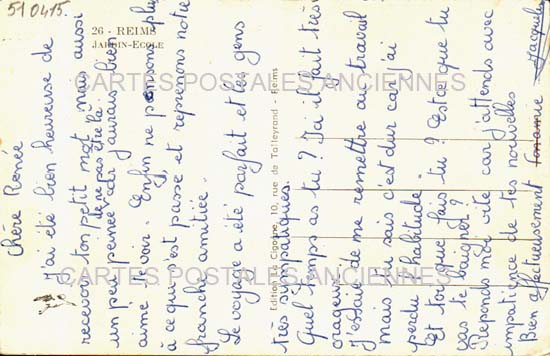 510415
26 - REIMS
JARDIN-ECOLE
Edition La Cigogne, 10, rue de Talleyrand - Reims
CARTES POSTALES ANCIENNES
CARTES POSTALES ANCIENNES
Chère Renée
J'ai été bien heureuse de
recevoir ton petit mot mais aussi
un peu peinée de ne pas être là car j'aurais bien
aimé te voir. Enfin ne pensons plus
à ce qui s'est passé et reprenons notre
franche amitié.
Le voyage a été parfait et les gens
très sympathiques.
Quel temps as tu ? Ici il fait très
J'essaie de me remettre au travail
mais tu sais c'est dur car j'ai
perdu l'habitude
Et toi que fais tu ? Est ce que tu
vas te baigner ?
Réponds moi vite car j'attends avec
impatience de tes nouvelles
Bien affectueusement
Jacqueline